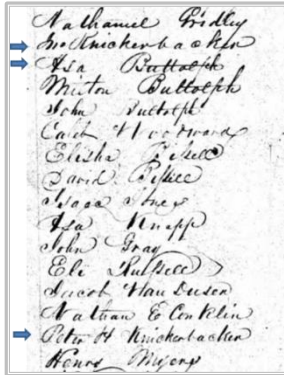 Nathaniel Gridley
Jno Knickerbacker
Asa Buttolph
Milton Buttolph
John Buttolph
Caleb Woodward
Elisha Bissell
David Bissell
Isaac
Asa Knapp
John Gray
Eli Russell
Jacob Van Deusen
Nathan E Conklin
Peter H Knickerbacker
Henry Myers